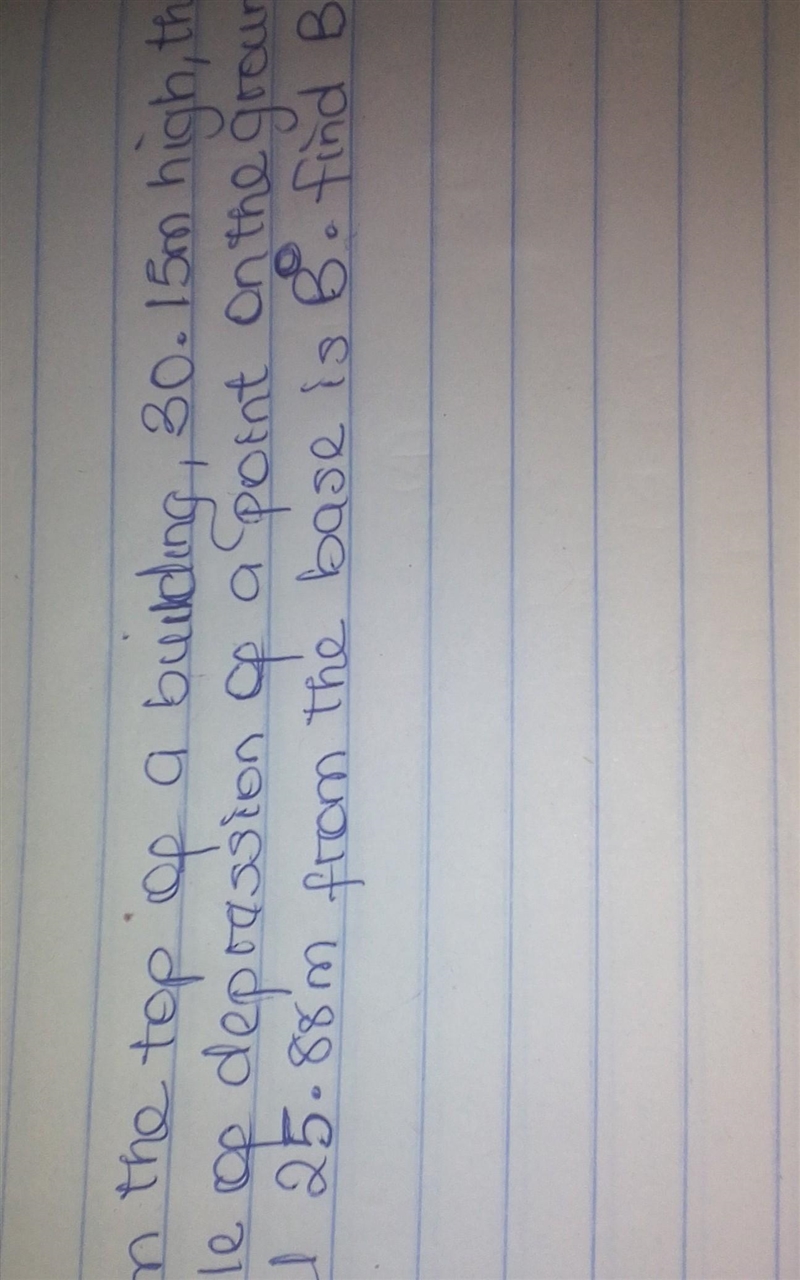 n the top of a building, 30.15m high, th
le of deprassion of a point on the groun
d 25.88m from the base is B°. find B